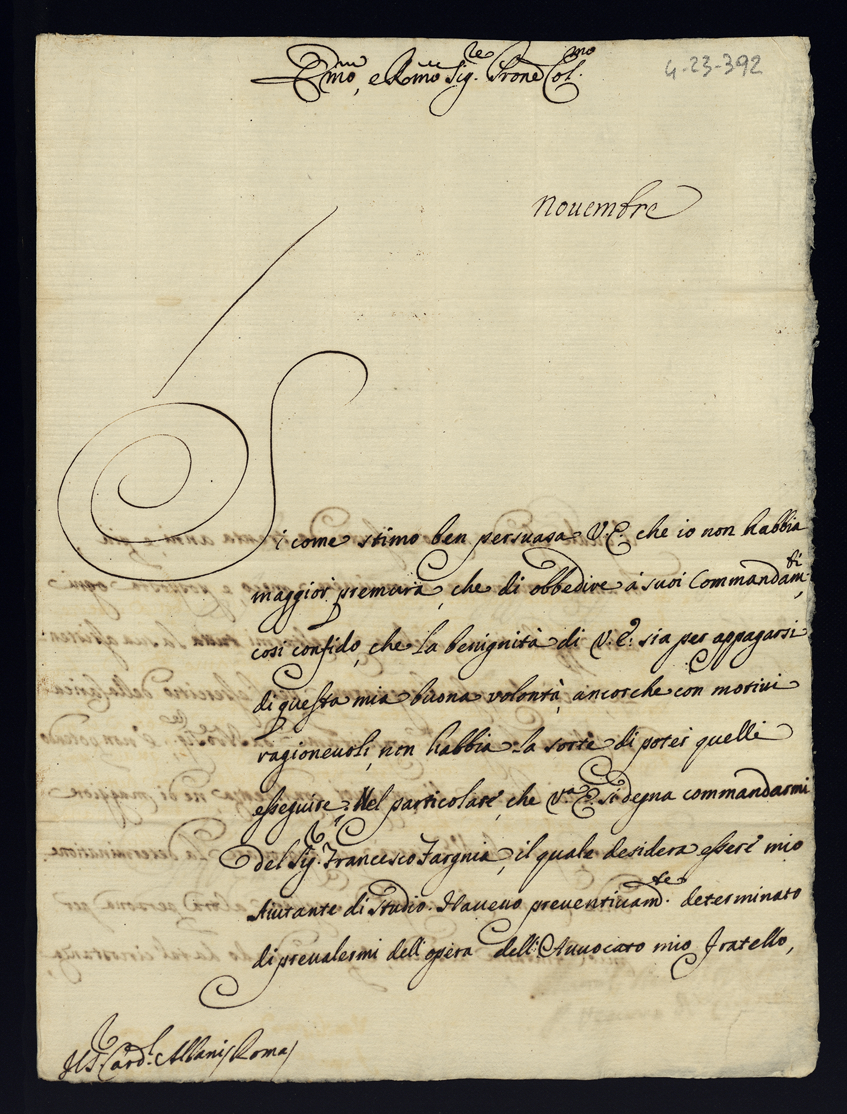 Em̃mo, e Rm̃o Sig.re Prone Col.mo
4-23-392
Nouembre
Si come stimo ben persuasa V.E. che io non habbia
maggior premura, che di obbedire à suoi Commandam.ti,
così confido, che la benignità di V.E. sia per appagarsi
di questa mia buona volontà, ancorche con motiui
ragioneuoli, non habbia la sorte di poter quelli
esseguire. Nel particolare, che V.a E. si degna commandarmi
del Sig.r Francesco Fargnia, il quale desidera essere mio
Aiutante di Studio. Haueuo preuentiuam.te determinato
di preualermi dell'opera dell'Auuocato mio Fratello,
Card.l Albani, Roma